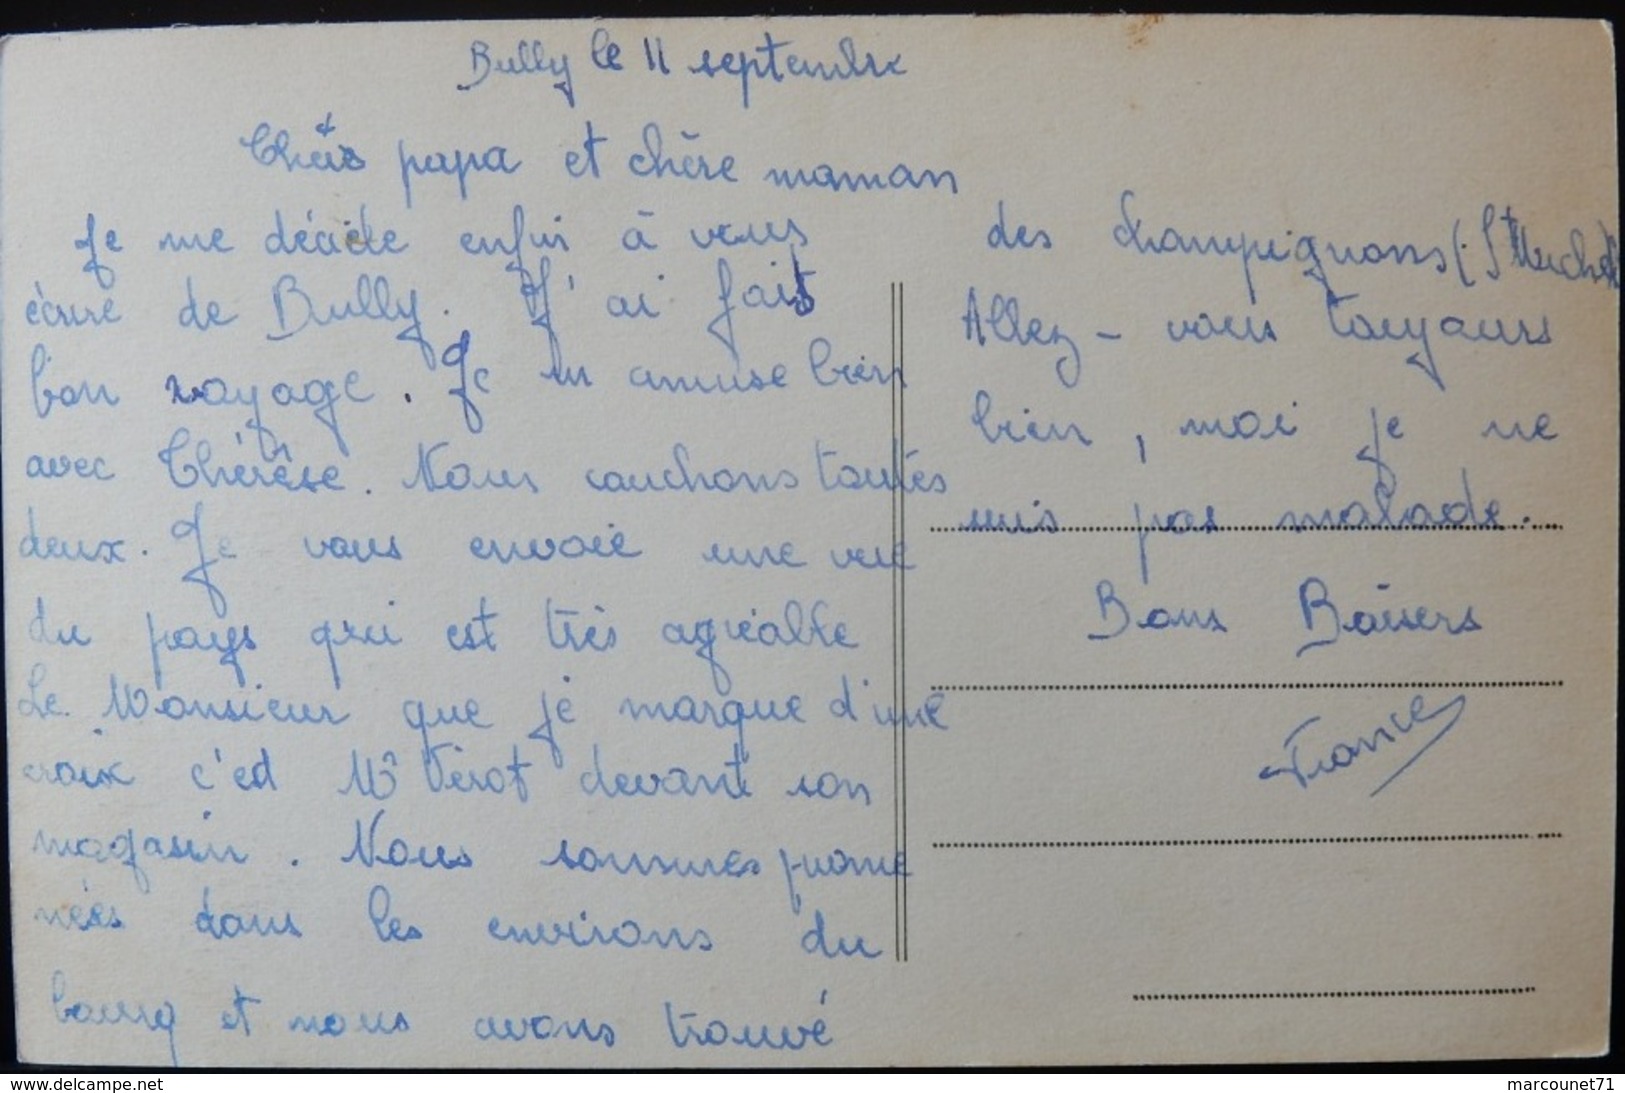 Bully le 11 septembre
Chers papa et chère maman
Je me décide enfin à vous
écrire de Bully. J'ai fait
bon voyage. Je m amuse bien
avec Thérèse. Nous couchons toutes
deux. Je vous envoie une vue
du pays qui est très agréable
Le Monsieur que je marque d'une
croix c'est Mr Verot devant son
magasin. Nous sommes prome
nées dans les environs du
bourg et nous avons trouvé
des champignons (St Michel
Allez-vous toujours
bien, moi je ne
suis pas malade.
Bons Baisers
France
www.delcampe.net
marcounet71